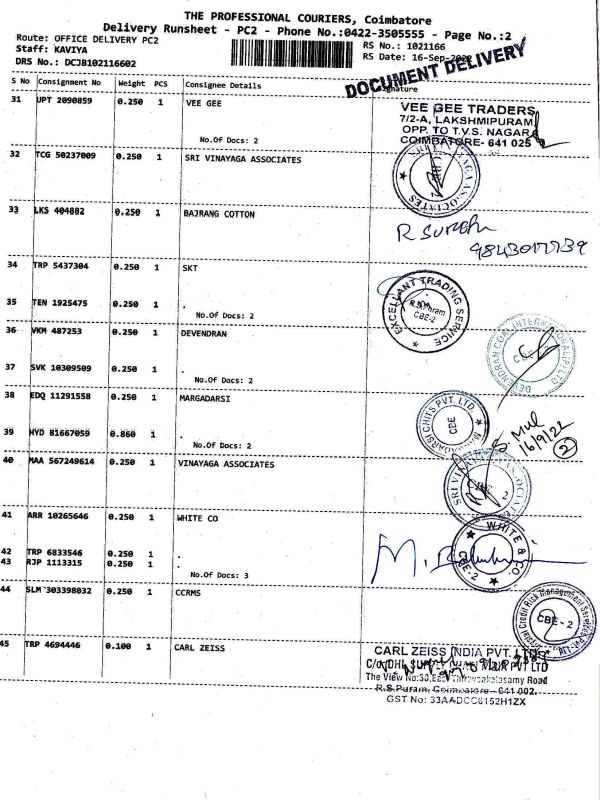 THE PROFESSIONAL COURIERS, Coimbatore
Delivery Runsheet - PC2 - Phone No.:0422-3505555 - Page No.:2
Route: OFFICE DELIVERY PC2
Staff: KAVIYA
DRS No.: DCJB102116602
RS No.: 1021166
RS Date: 16-Sep-2022
DOCUMENT DELIVERY
S No Consignment No Weight PCS Consignee Details Signature
31 UPT 2090859 0.250 1 VEE GEE
No.Of Docs: 2
VEE GEE TRADERS
7/2-A, LAKSHMIPURAM
OPP. TO T.V.S. NAGAR
COIMBATORE- 641 025
32 TCG 50237009 0.250 1 SRI VINAYAGA ASSOCIATES
33 LKS 404882 0.250 1 BAJRANG COTTON
R Suresh
34 TRP 5437304 0.250 1 SKT
EXCELLANT TRADING SERVICE
R.S.Puram
CBE-2
35 TEN 1925475 0.250 1 .
No.Of Docs: 2
36 VKM 487253 0.250 1 DEVENDRAN
DEVENDRAN COAL INTERNATIONAL P LTD
37 SVK 10309509 0.250 1 .
No.Of Docs: 2
38 EDQ 11291558 0.250 1 MARGADARSI
MARGADARSI CHITS PVT. LTD.
CBE
39 HYD 81667059 0.860 1 .
No.Of Docs: 2
16/9/22
2
40 MAA 567249614 0.250 1 VINAYAGA ASSOCIATES
41 ARR 10265646 0.250 1 WHITE CO
WHITE & CO.
CBE-2
42 TRP 6833546 0.250 1 .
43 RJP 1113315 0.250 1 .
No.Of Docs: 3
44 SLM 303398032 0.250 1 CCRMS
CBE-2
45 TRP 4694446 0.100 1 CARL ZEISS
CARL ZEISS INDIA PVT. LTD
C/o DHL SUPPLY CHAIN PVT LTD
The View No:33, Road
R.S.Puram, Coimbatore- 641 002.
GST No: 33AADCC6152H1ZX